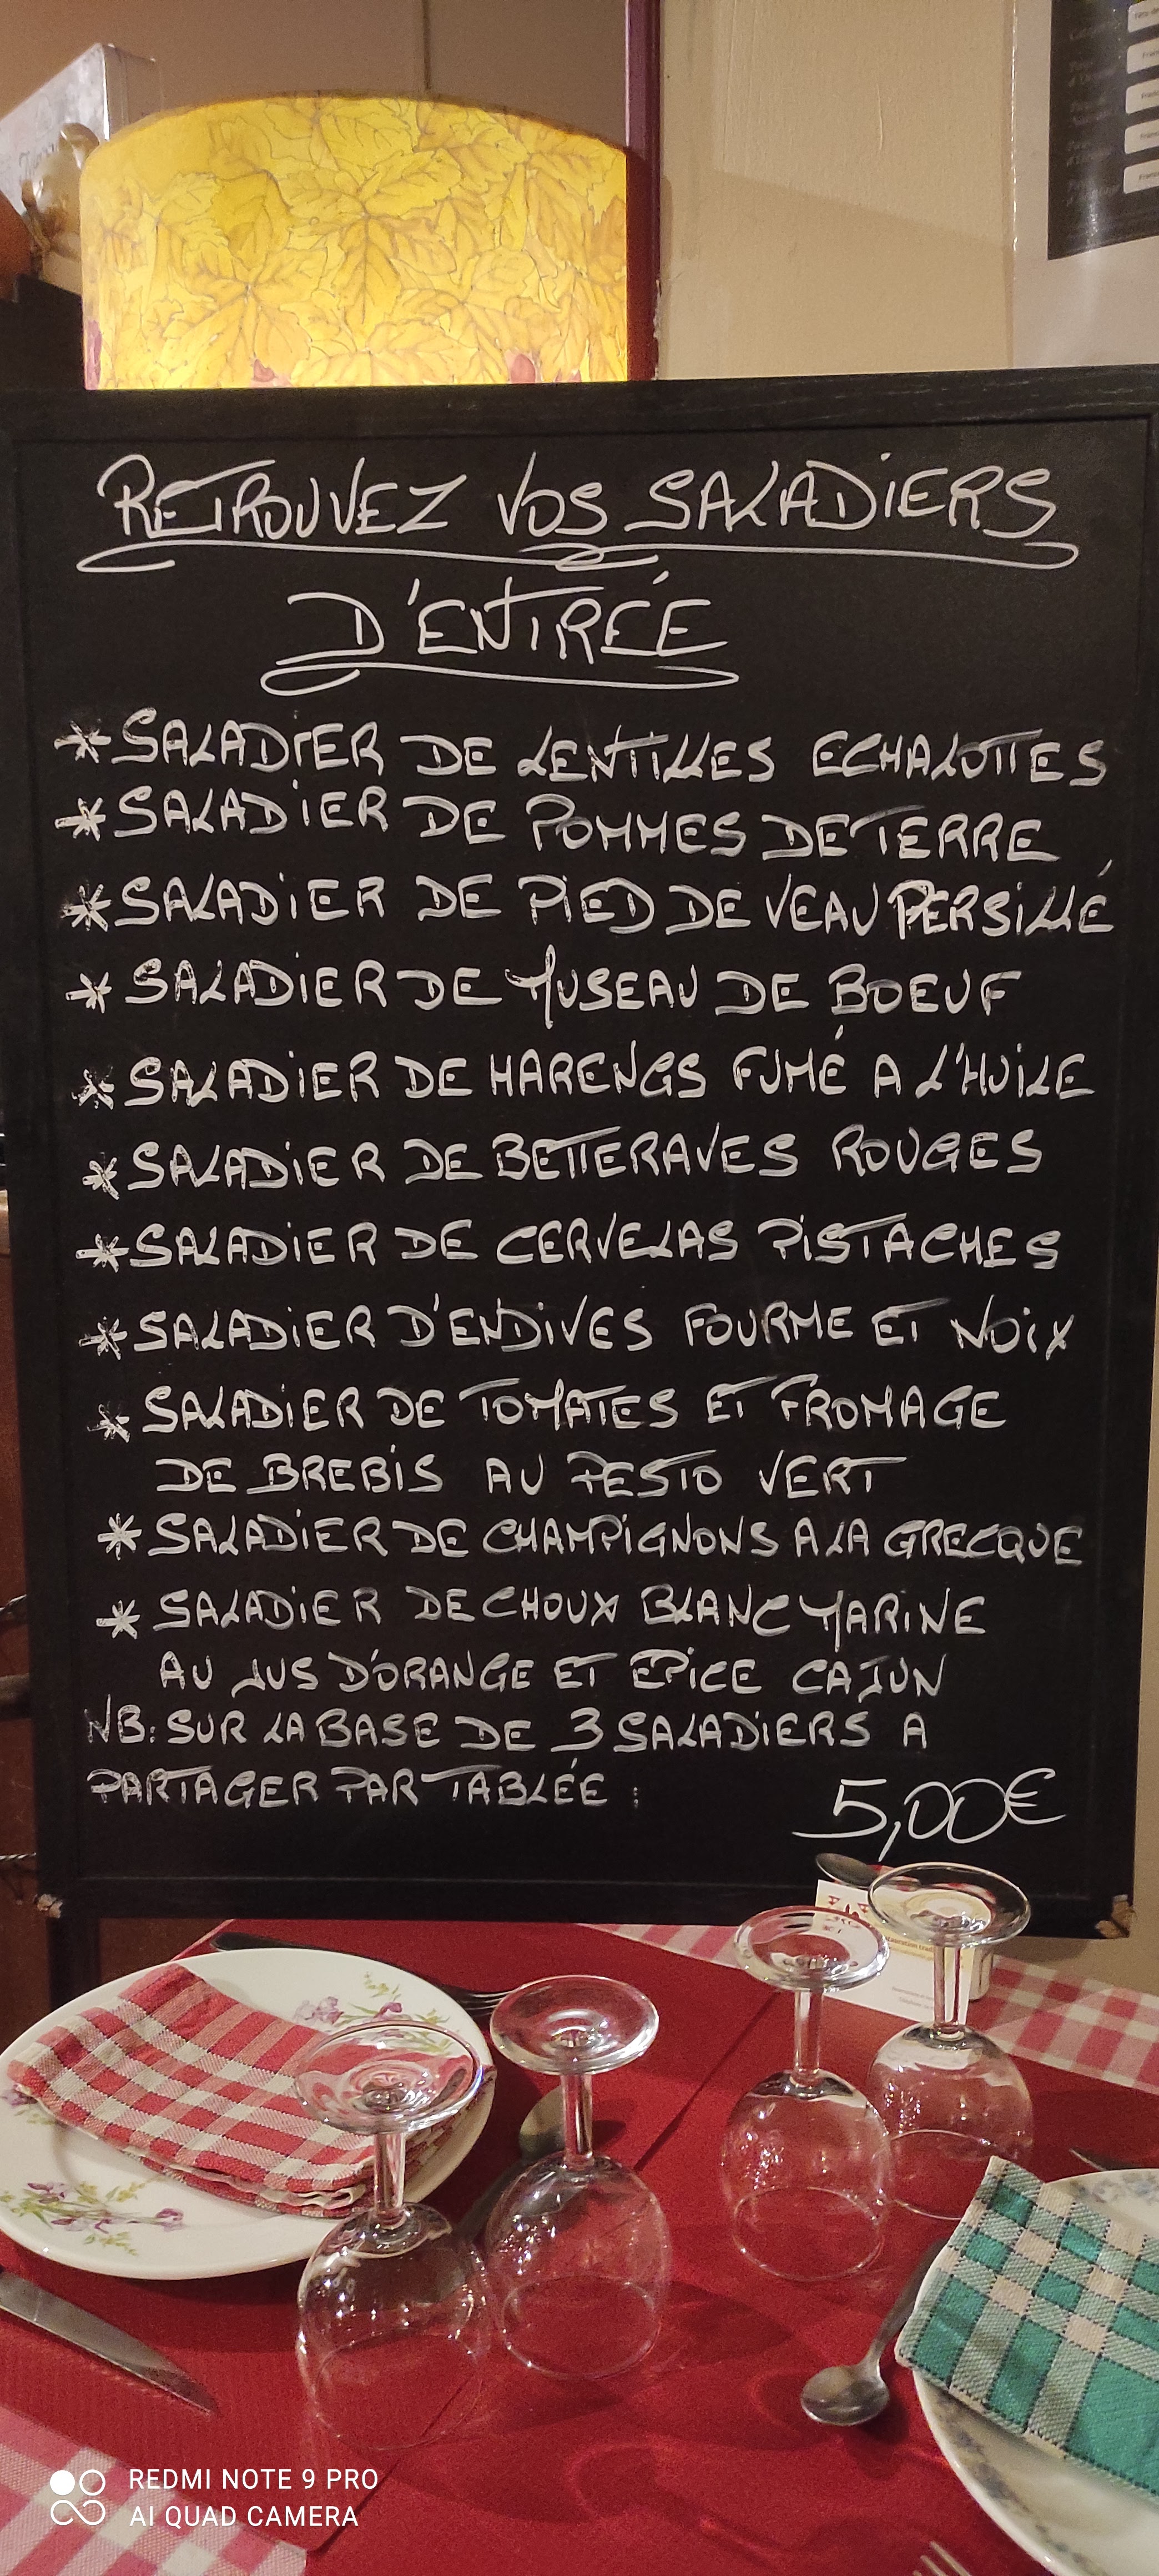 RETROUVEZ VOS SALADIERS
D'ENTRÉE
* SALADIER DE LENTILLES ECHALOTTES
* SALADIER DE POMMES DE TERRE
* SALADIER DE PIED DE VEAU PERSILLÉ
* SALADIER DE MUSEAU DE BOEUF
* SALADIER DE HARENGS FUMÉ A L'HUILE
* SALADIER DE BETTERAVES ROUGES
* SALADIER DE CERVELAS PISTACHES
* SALADIER D'ENDIVES FOURME ET NOIX
* SALADIER DE TOMATES ET FROMAGE
DE BREBIS AU PESTO VERT
* SALADIER DE CHAMPIGNONS A LA GRECQUE
* SALADIER DE CHOUX BLANC MARINE
AU JUS D'ORANGE ET EPICE CAJUN
NB: SUR LA BASE DE 3 SALADIERS A
PARTAGER PAR TABLÉE :
5,00€
REDMI NOTE 9 PRO
AI QUAD CAMERA